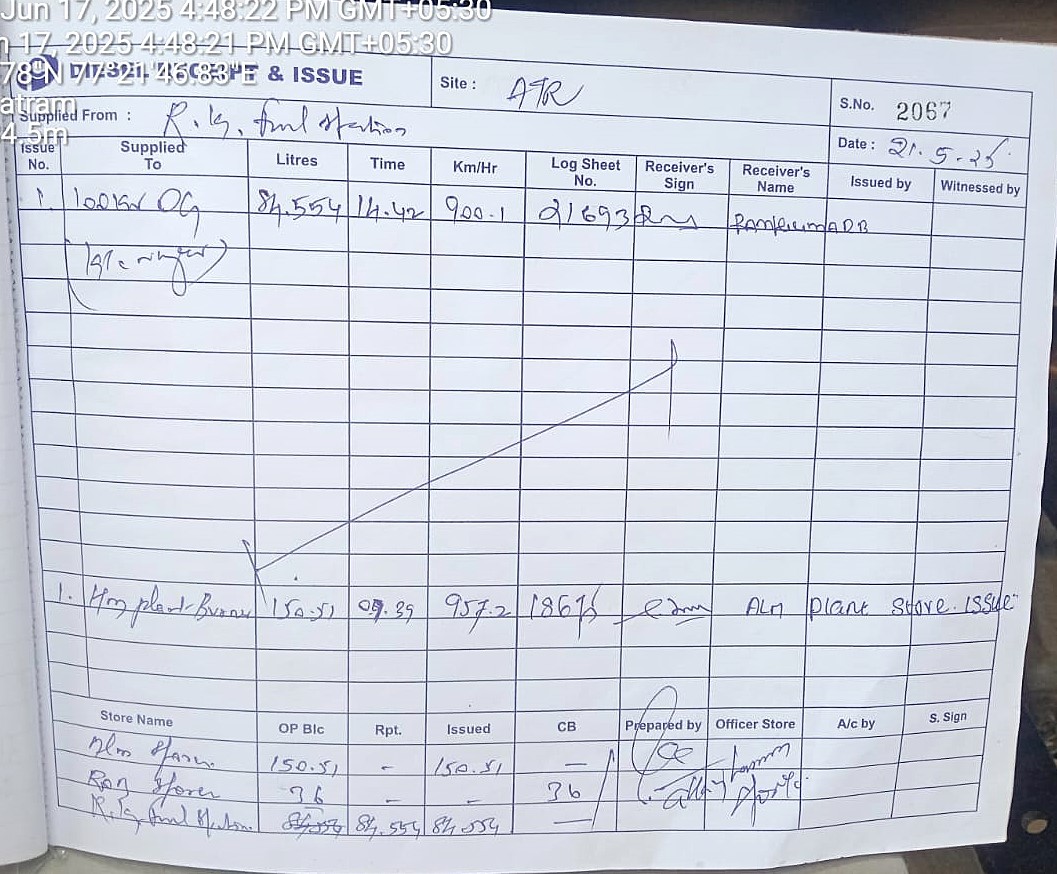 Jun 17, 2025 4:48:22 PM GMT+05:30
n 17, 2025 4:48:21 PM GMT+05:30
78"N 77°21'46.83"E
atram
4.5m
& ISSUE
Site : ATR
S.No. 2067
Supplied From : R.K. fuel station
Date : 21.5.25
Issue No. Supplied To Litres Time Km/Hr Log Sheet No. Receiver's Sign Receiver's Name Issued by Witnessed by
1. DG 84.554 14.42 900.1 21693
1. Hm plant 150.51 09.39 957.2 ALM plant store issue
Store Name OP Blc Rpt. Issued CB Prepared by Officer Store A/c by S. Sign
150.51 - 150.51 —
36 - - 36
R.K. fuel station 84.554 84.554 84.554 —